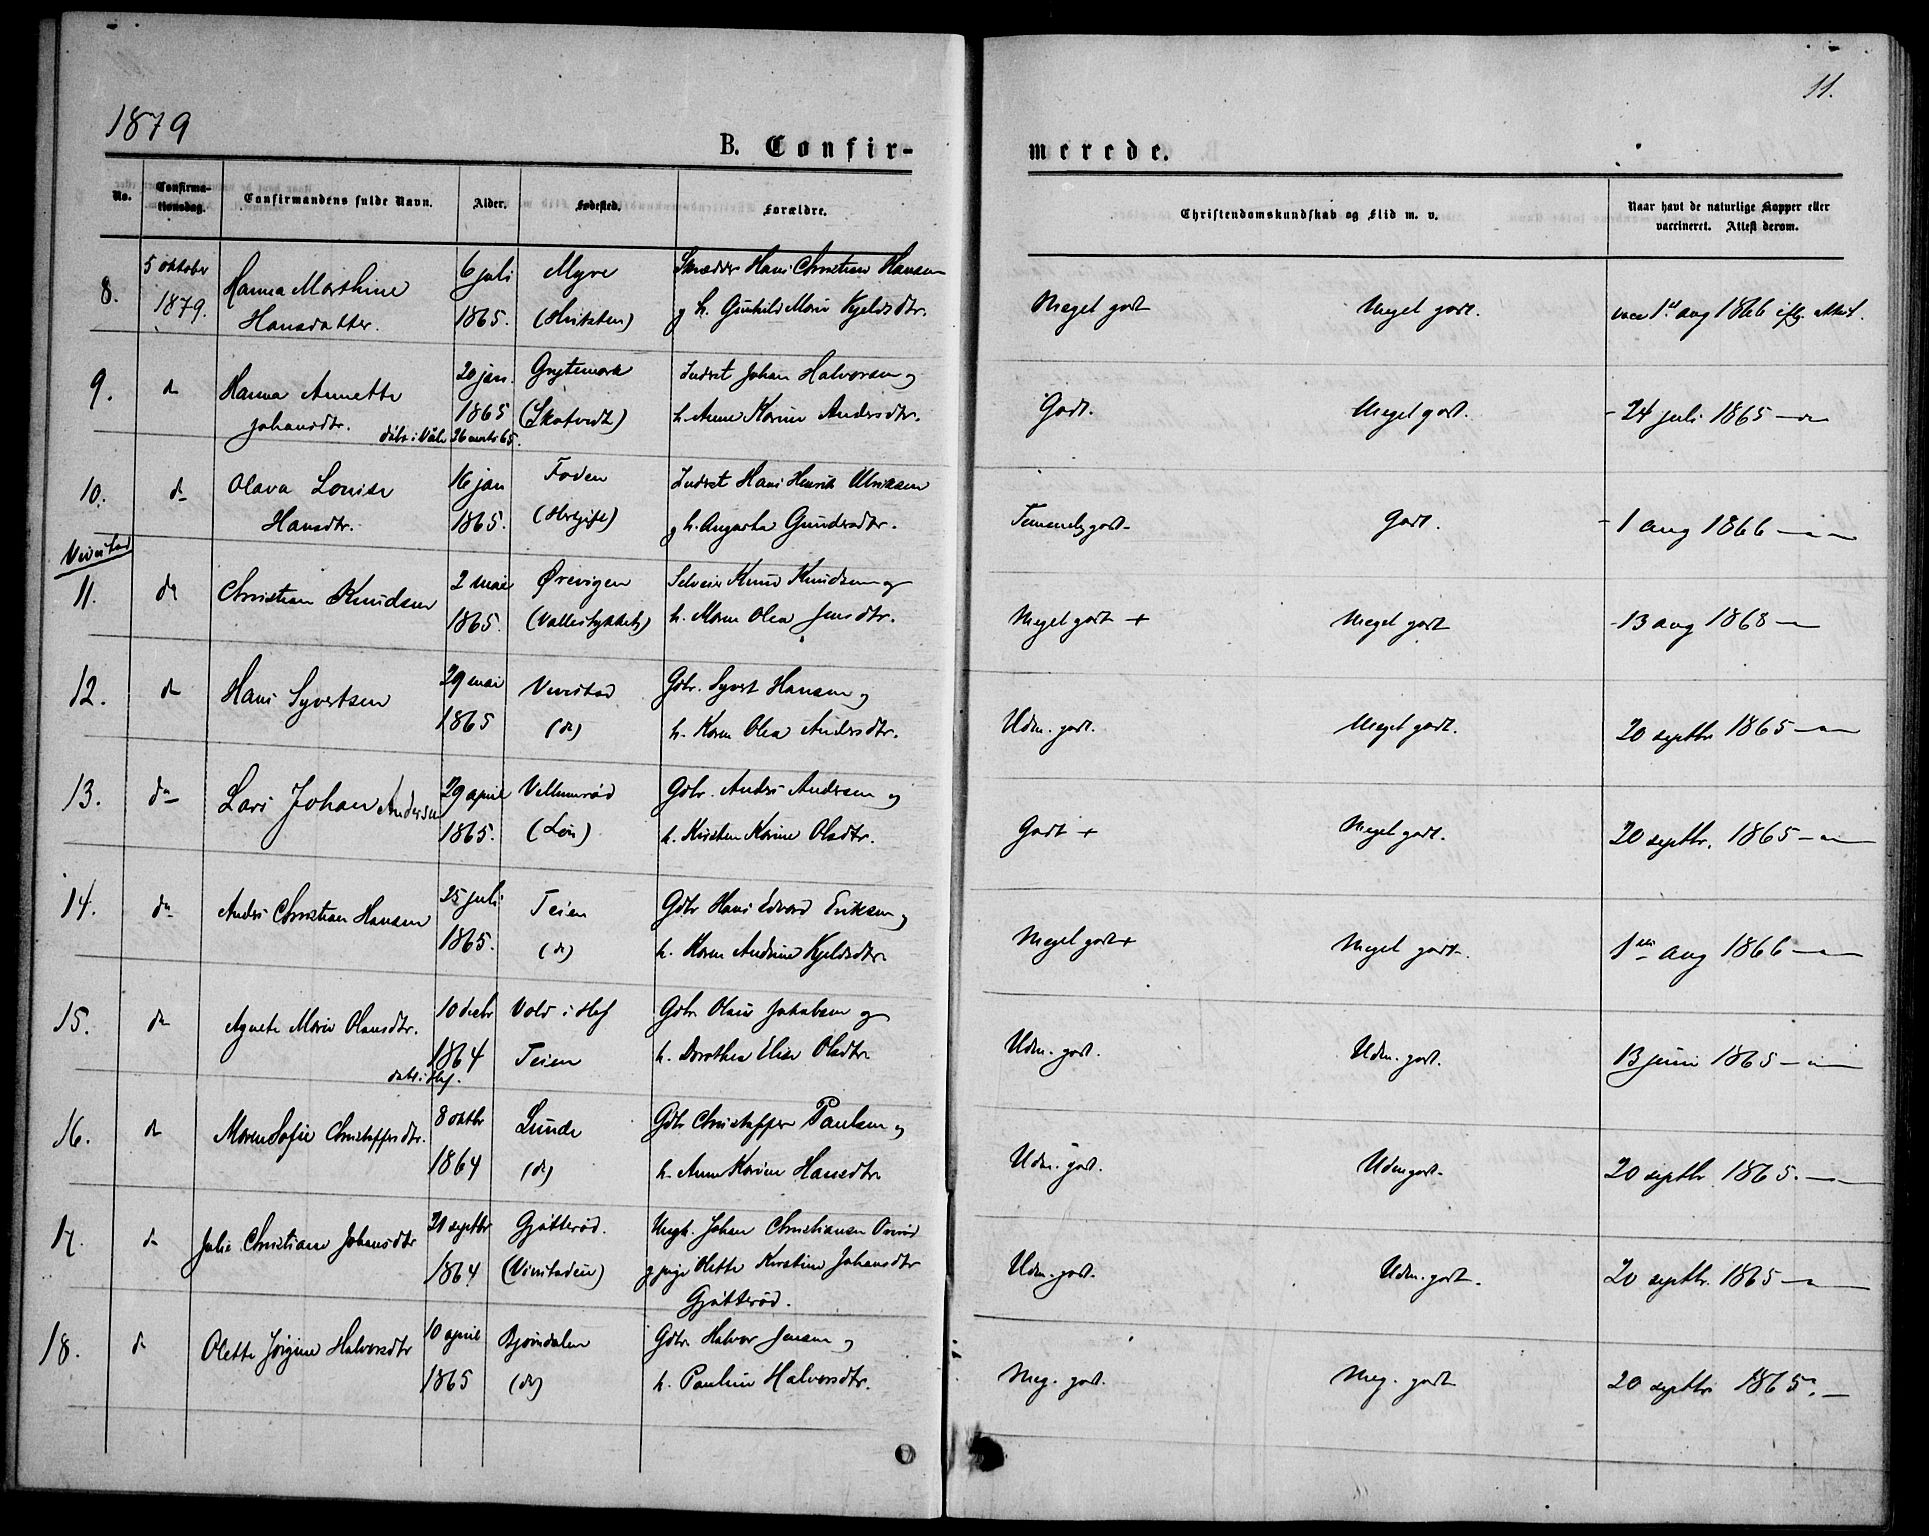 1879
11.
B. Confir-
merede.
No.
Confirma-
tionsdag.
Confirmandens fulde Navn.
Alder.
Fødested.
Forældre.
Christendomskundskab og Flid m. v.
Naar havt de naturlige Kopper eller
vaccineret. Attest derom.
8. 5 oktober Hanna Marthine 6 juli Myre Skrædder Hans Christian Hansen
1879. Hansdatter. 1865. (Hvitsten) g h. Gunhild Marie Kjeldsdtr.
Meget godt Meget godt. vacc 1st aug 1866 iflg. attest.
9. do Hanna Annette 20 jan. Grytemora Inderst Johan Halvorsen og
Johansdtr. 1865 (Skatvedt) h. Anne Karine Andersdtr.
døbt i Våle 26 marts 65.
Godt. Meget godt. - 24 juli 1865 — do
10. do Olava Louise 16 jan Foden Inderst Hans Henrik Ulriksen
Hansdtr. 1865. g h. Augusta Gundersdtr.
Temmelig godt Godt. - 1 aug 1866
Vivestad
11. do Christian Knudsen 2 mai Ørevigen Selveier Knud Knudsen og
1865. (Vallestykket) h. Maren Olea Jensdtr.
Meget godt + Meget godt - 13 aug 1868
12. do Hans Syvertsen 29 mai Vivestad Gdbr. Syvert Hansen og
1865 (do) h. Karen Olea Andersdtr.
Udm. godt. Meget godt. 20 septbr 1865
13. do Lars Johan Andersen 29 april Gdbr. Anders Andersen og
1865. h. Kirsten Karine Olsdtr.
Godt + Meget godt. 20 septbr. 1865
14. do Anders Christian Hansen 25 juli Teien Gdbr Hans Edvard Eriksen og
1865. (do) h. Karen Andrine Kjeldsdtr.
Meget godt + Meget godt. 1ste aug 1866
15. do Agnete Marie Olausdtr. 10 decbr Vold i Hof Gdbr Olaus Jakobsen og
1864 Teien h. Dorothea Elise Olsdtr
døbt i Hof.
Udm. godt. Udm. godt. 13 juni 1865
16. do Maren Sofie Christoffersdtr. 8 oktbr Lunde Gdbr Christoffer Paulsen og
1864 (do) h. Anne Karine Hansdtr
Udm. godt. Udm godt. 20 septbr 1865.
17. do Julie Christiane Johansdtr 21 septbr Gjøtterød. Ungk. Johan Christiansen
1864 g pige Olette Kirstine Johansdtr
Gjøtterød.
Udm. godt. Udm. godt. 20 septbr. 1865
18. do Olette Jørgine Halvorsdtr 10 april Bjørndalen Gdbr. Halvor Jensen og
1865 (do) h. Pauline Halvorsdtr.
Meg. godt. Meg. godt 20 septbr 1865.